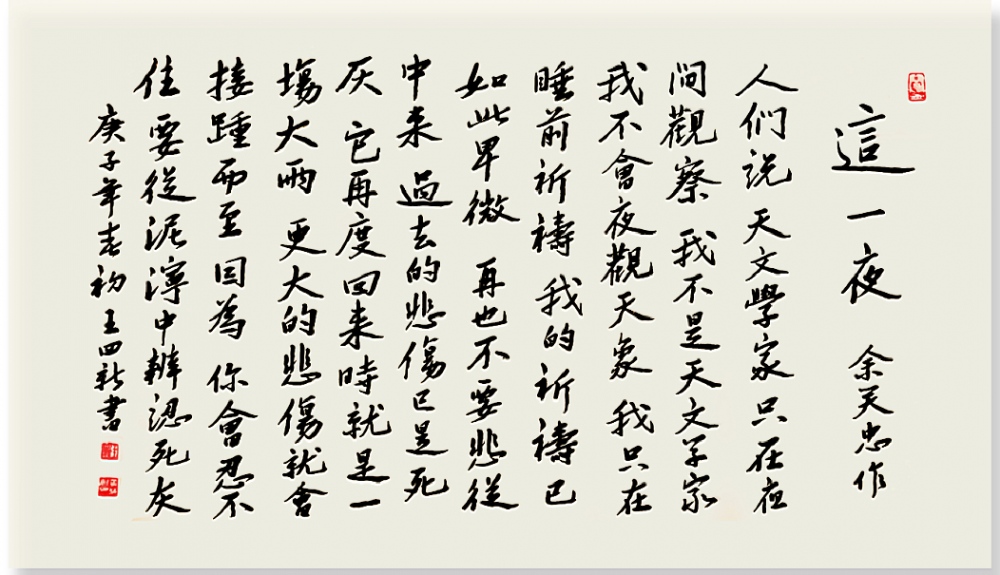 這一夜 余天忠作
人们説 天文學家只在夜
间觀察 我不是天文学家
我不會夜觀天象 我只在
睡前祈禱 我的祈禱已
如此卑微 再也不要悲從
中来 過去的悲傷已是死
灰 它再度回来時就是一
塲大雨 更大的悲傷就會
接踵而至 因為 你會忍不
住要從泥濘中辨認死灰
庚子年春初王四新書